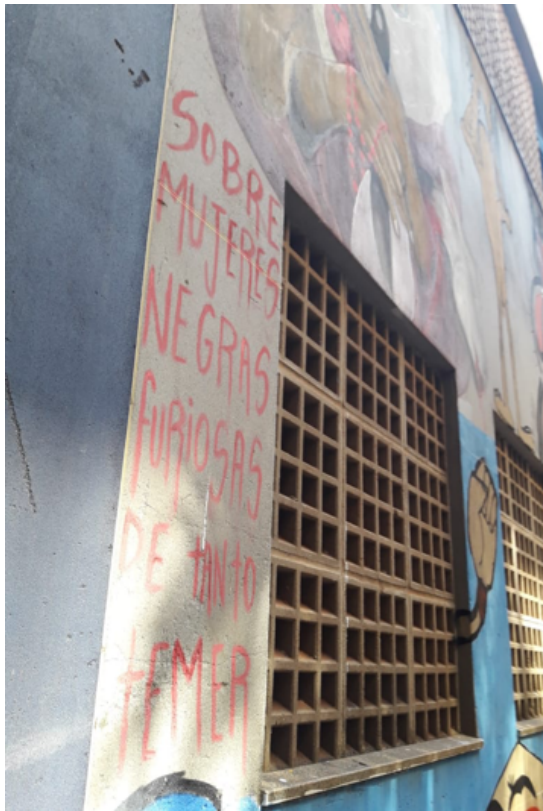 SOBRE
MUJERES
NEGRAS
fURiOSAS
DE tANtO
tEMER